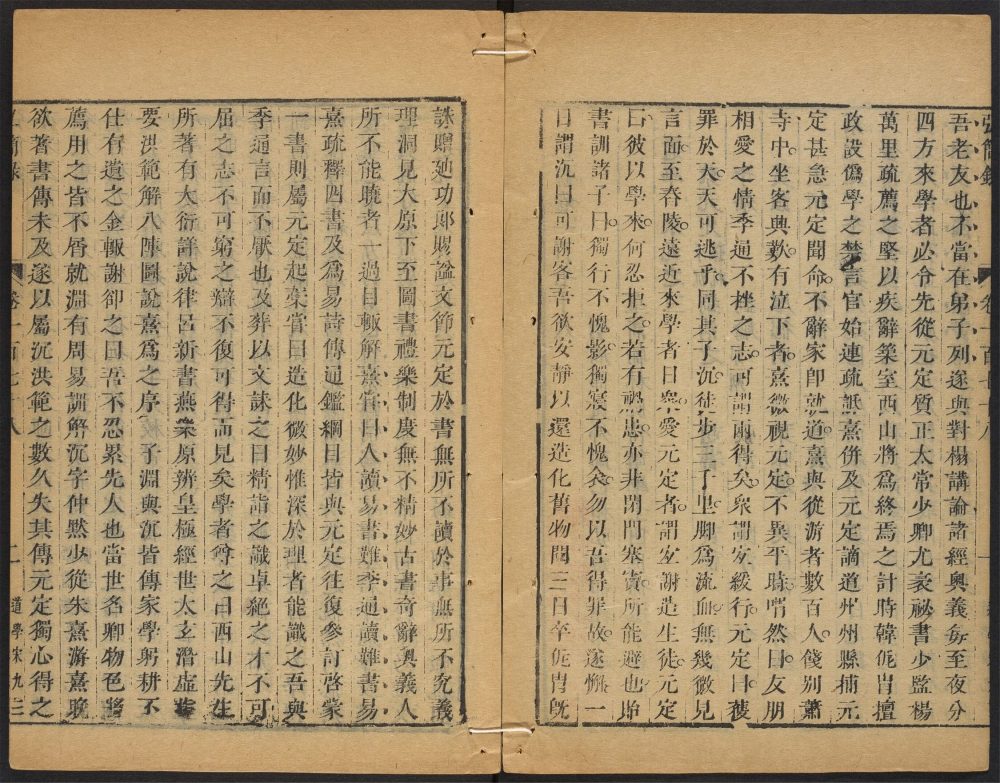 弘簡錄 卷一百七十八
吾老友也不當在弟子列遂與對榻講論諸經奧義每至夜分
四方來學者必令先從元定質正太常少卿尤袤祕書少監楊
萬里疏薦之堅以疾辭築室西山將為終焉之計時韓侂冑擅
政設偽學之禁言官始連疏詆熹併及元定謫道州縣捕元
定甚急元定聞命不辭家即就道熹與從游者數百人餞別蕭
寺中坐客興歎有泣下者熹微視元定不異平時喟然曰友朋
相愛之情季通不挫之志可謂兩得矣眾謂宜緩行元定曰獲
罪於天天可逃乎同其子沉徒步三千里腳為流血無幾微見
言面至舂陵遠近來學者日眾愛元定者謂宜謝造生徒元定
曰彼以學來何忍拒之若有禍患亦非閉門塞竇所能避也貽
書訓諸子曰獨行不愧影獨寢不愧衾勿以吾得罪故遂懈一
日謂沉曰可謝客吾欲安靜以還造化舊物閱三日卒侂冑既
誅贈廸功郎賜謚文節元定於書無所不讀於事無所不究義
理洞見大原下至圖書禮樂制度無不精妙古書奇辭奧義人
所不能曉者一過目輙解熹嘗曰人讀易書難季通讀難書易
熹疏釋四書及為易詩傳通鑑綱目皆與元定往復參訂啓蒙
一書則屬元定起稾嘗曰造化微妙惟深於理者能識之吾與
季通言而不厭也及葬以文誄之曰精詣之識卓絕之才不可
屈之志不可窮之辯不復可得而見矣學者尊之曰西山先生
所著有大衍詳說律呂新書燕樂原辨皇極經世太玄潛虛指
要洪範解八陣圖說熹為之序 子淵與沉皆傳家學躬耕不
仕有遺之金輙謝卻之曰吾不忍累先人也當世名卿物色將
薦用之皆不屑就淵有周易訓解沉字仲默少從朱熹游熹晚
欲著書傳未及遂以屬沉洪範之數久失其傳元定獨心得之
弘簡錄 卷一百七十八 二 道學宋九三